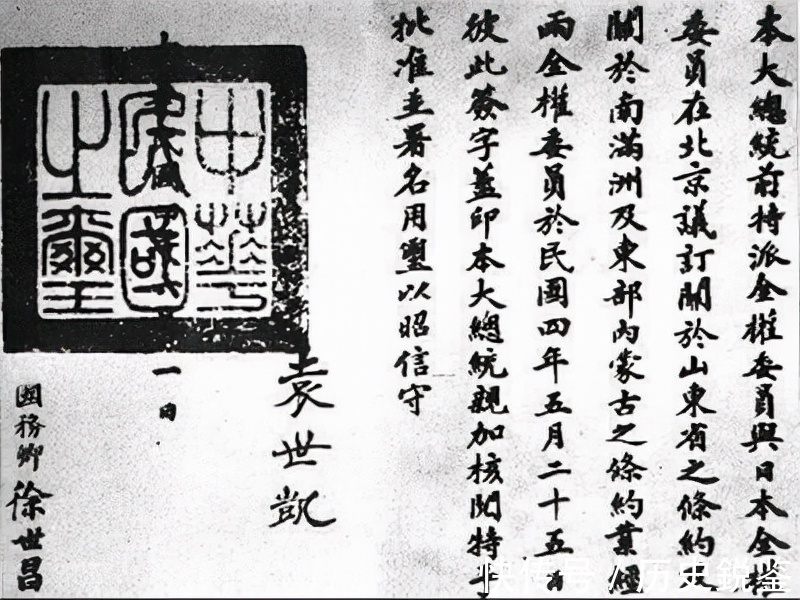 本大總統前特派全權委員與日本全權
委員在北京議訂關於山東省之條約
關於南滿洲及東部內蒙古之條約業經
兩全權委員於民國四年五月二十五日
彼此簽字蓋印本大總統親加核閱特
批准並署名用璽以昭信守
袁世凱
中華
民國
之璽
一日
國務卿徐世昌
快传号/历史銳鉴